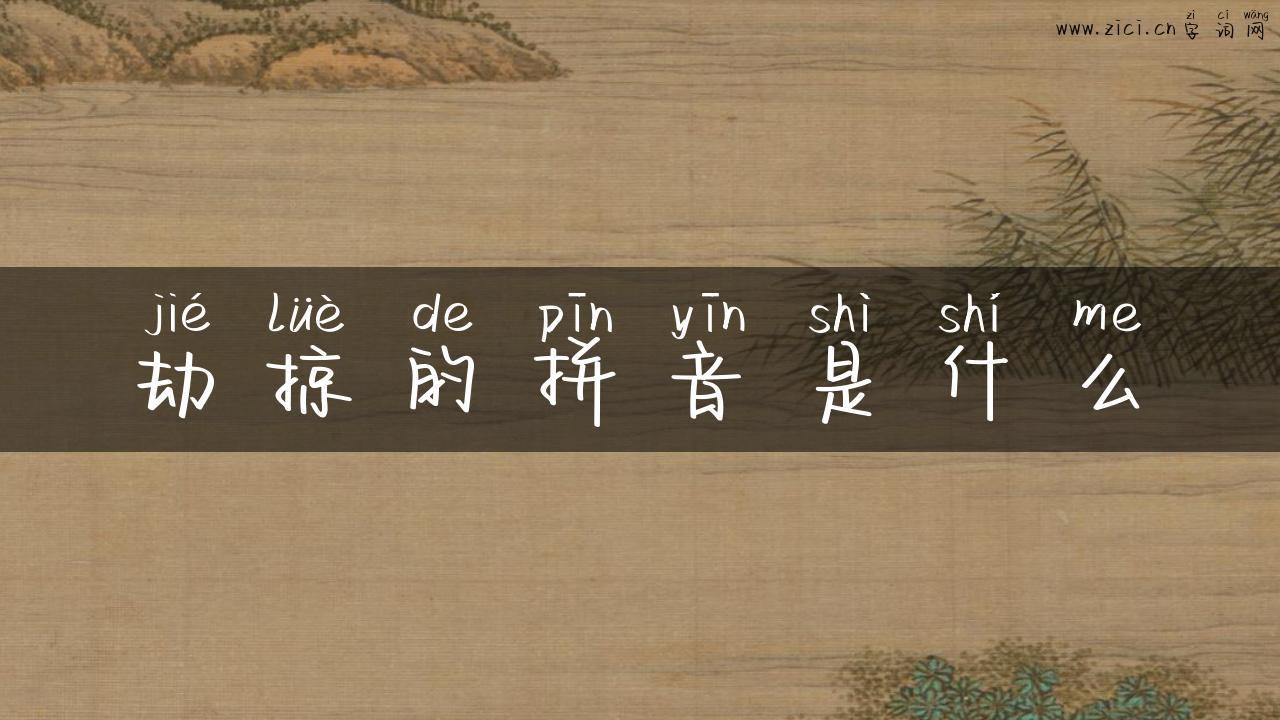 zì cí wǎng
www.zici.cn 字词网
jié lüè de pīn yīn shì shí me
劫掠的拼音是什么